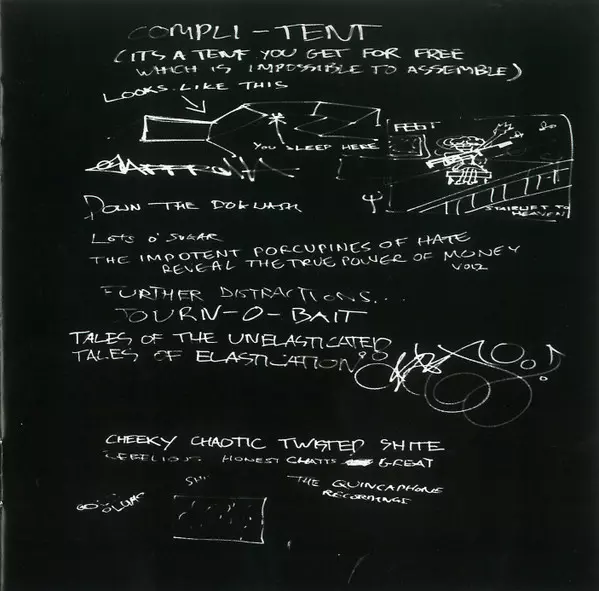 COMPLI-TENT
(ITS A TENT YOU GET FOR FREE
WHICH IS IMPOSSIBLE TO ASSEMBLE)
LOOKS LIKE THIS
YOU SLEEP HERE
FEET
STAIRLIFT TO
HEAVEN
DOWN THE
LOTS O' SUGAR
THE IMPOTENT PORCUPINES OF HATE
REVEAL THE TRUE POWER OF MONEY
VOL2
FURTHER DISTRACTIONS...
TOURN-O-BAIT
TALES OF THE UNELASTICATED
TALES OF ELASTICATION
CHEEKY CHAOTIC TWISTED SHITE
HONEST GREAT
THE QUINCAPHONE
RECORDINGS